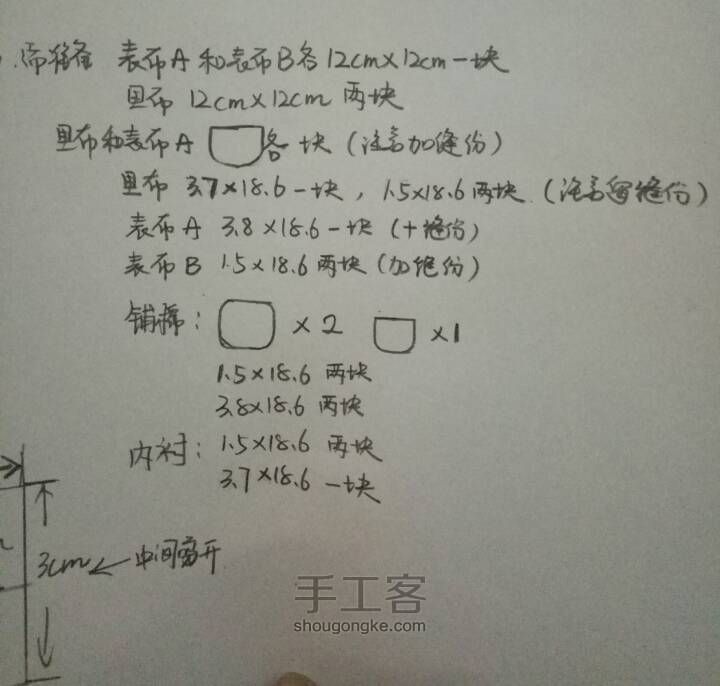 需准备 表布A和表布B各12cm×12cm一块
里布 12cm×12cm 两块
里布和表布A 各 块（注意加缝份）
里布 3.7×18.6一块，1.5×18.6两块（注意留缝份）
表布A 3.8×18.6一块（+缝份）
表布B 1.5×18.6两块（加缝份）
铺棉： ×2 ×1
1.5×18.6 两块
3.8×18.6 两块
内衬：1.5×18.6 两块
3.7×18.6 一块
3cm ← 中间离开
手工客
shougongke.com